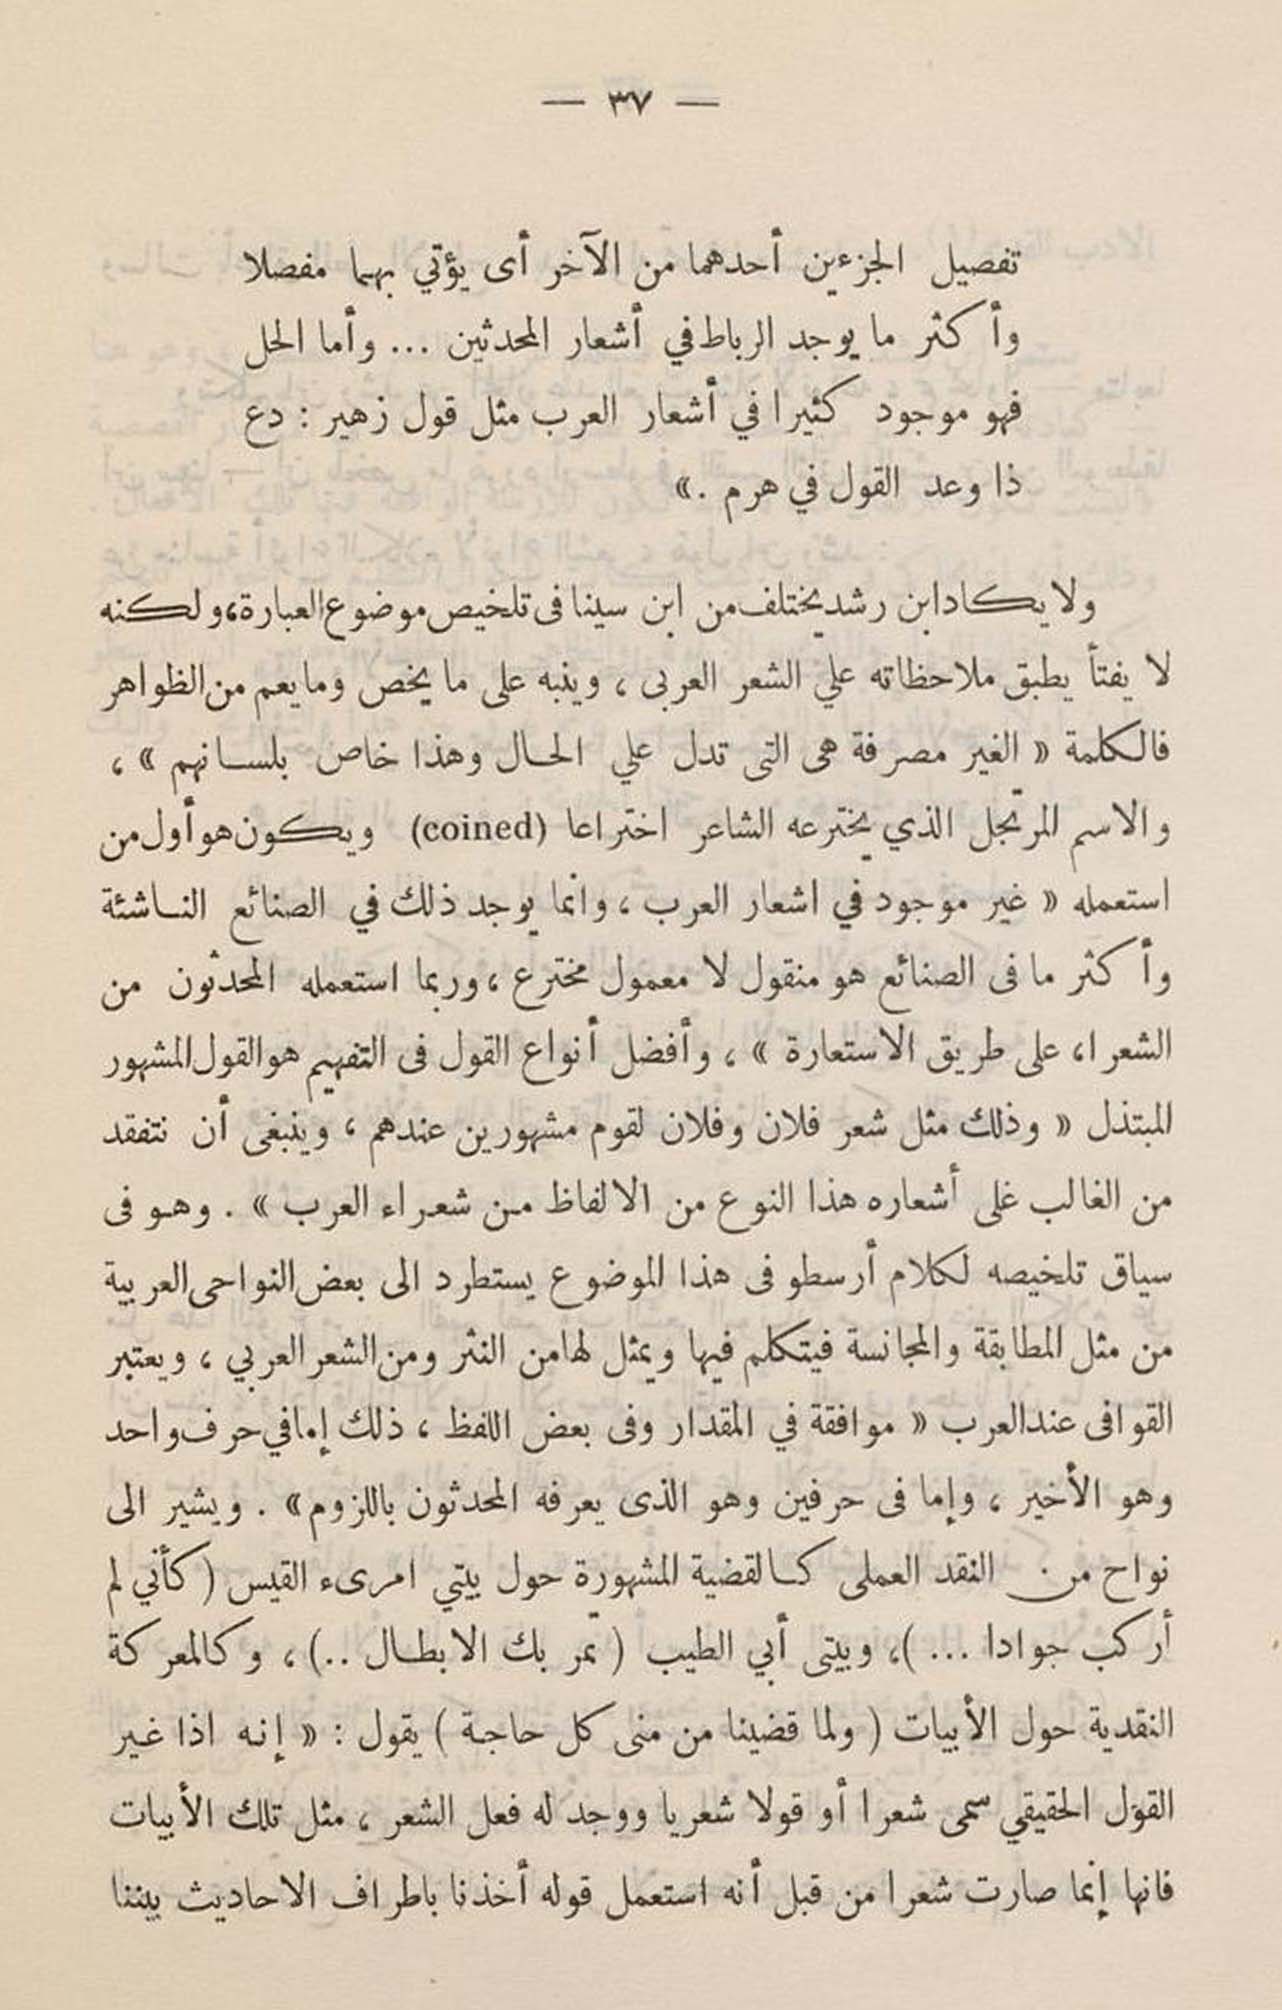 — ٣٧ —
تفصيل الجزءين أحدهما من الآخر أى يؤتي بهما مفصلا
وأكثر ما يوجد الرباط في أشعار المحدثين ... وأما الحل
فهو موجود كثيرا في أشعار العرب مثل قول زهير : دع
ذا وعد القول في هرم . »
ولا يكاد ابن رشد يختلف من ابن سينا فى تلخيص موضوع العبارة، ولكنه
لا يفتأ يطبق ملاحظاته علي الشعر العربى ، وينبه على ما يخص وما يعم من الظواهر
فالكلمة « الغير مصرفة هى التى تدل علي الحال وهذا خاص بلسانهم » ،
والاسم المرتجل الذي يخترعه الشاعر اختراعا (coined) ويكون هو أول من
استعمله « غير موجود في اشعار العرب ، وانما يوجد ذلك في الصنائع الناشئة
وأكثر ما فى الصنائع هو منقول لا معمول مخترع ، وربما استعمله المحدثون من
الشعراء على طريق الاستعارة » ، وأفضل أنواع القول فى التفهيم هو القول المشهور
المبتذل « وذلك مثل شعر فلان وفلان لقوم مشهورين عندهم ، وينبغى أن نتفقد
من الغالب غلى أشعاره هذا النوع من الالفاظ من شعراء العرب » . وهو فى
سياق تلخيصه لكلام أرسطو فى هذا الموضوع يستطرد الى بعض النواحى العربية
من مثل المطابقة والمجانسة فيتكلم فيها ويمثل لها من النثر ومن الشعر العربي ، ويعتبر
القوافى عند العرب « موافقة في المقدار وفى بعض اللفظ ، ذلك إما في حرف واحد
وهو الأخير ، وإما فى حرفين وهو الذى يعرفه المحدثون باللزوم » . ويشير الى
نواح من النقد العملى كالقضية المشهورة حول بيتي امرىء القيس ( كأني لم
أركب جوادا ... )، وبيتى أبي الطيب ( تمر بك الابطال .. ) ، وكالمعركة
النقدية حول الأبيات ( ولما قضينا من منى كل حاجة ) يقول : « إنه اذا غير
القول الحقيقي سمى شعرا أو قولا شعريا ووجد له فعل الشعر ، مثل تلك الأبيات
فانها إنما صارت شعرا من قبل أنه استعمل قوله أخذنا باطراف الاحاديث بيننا